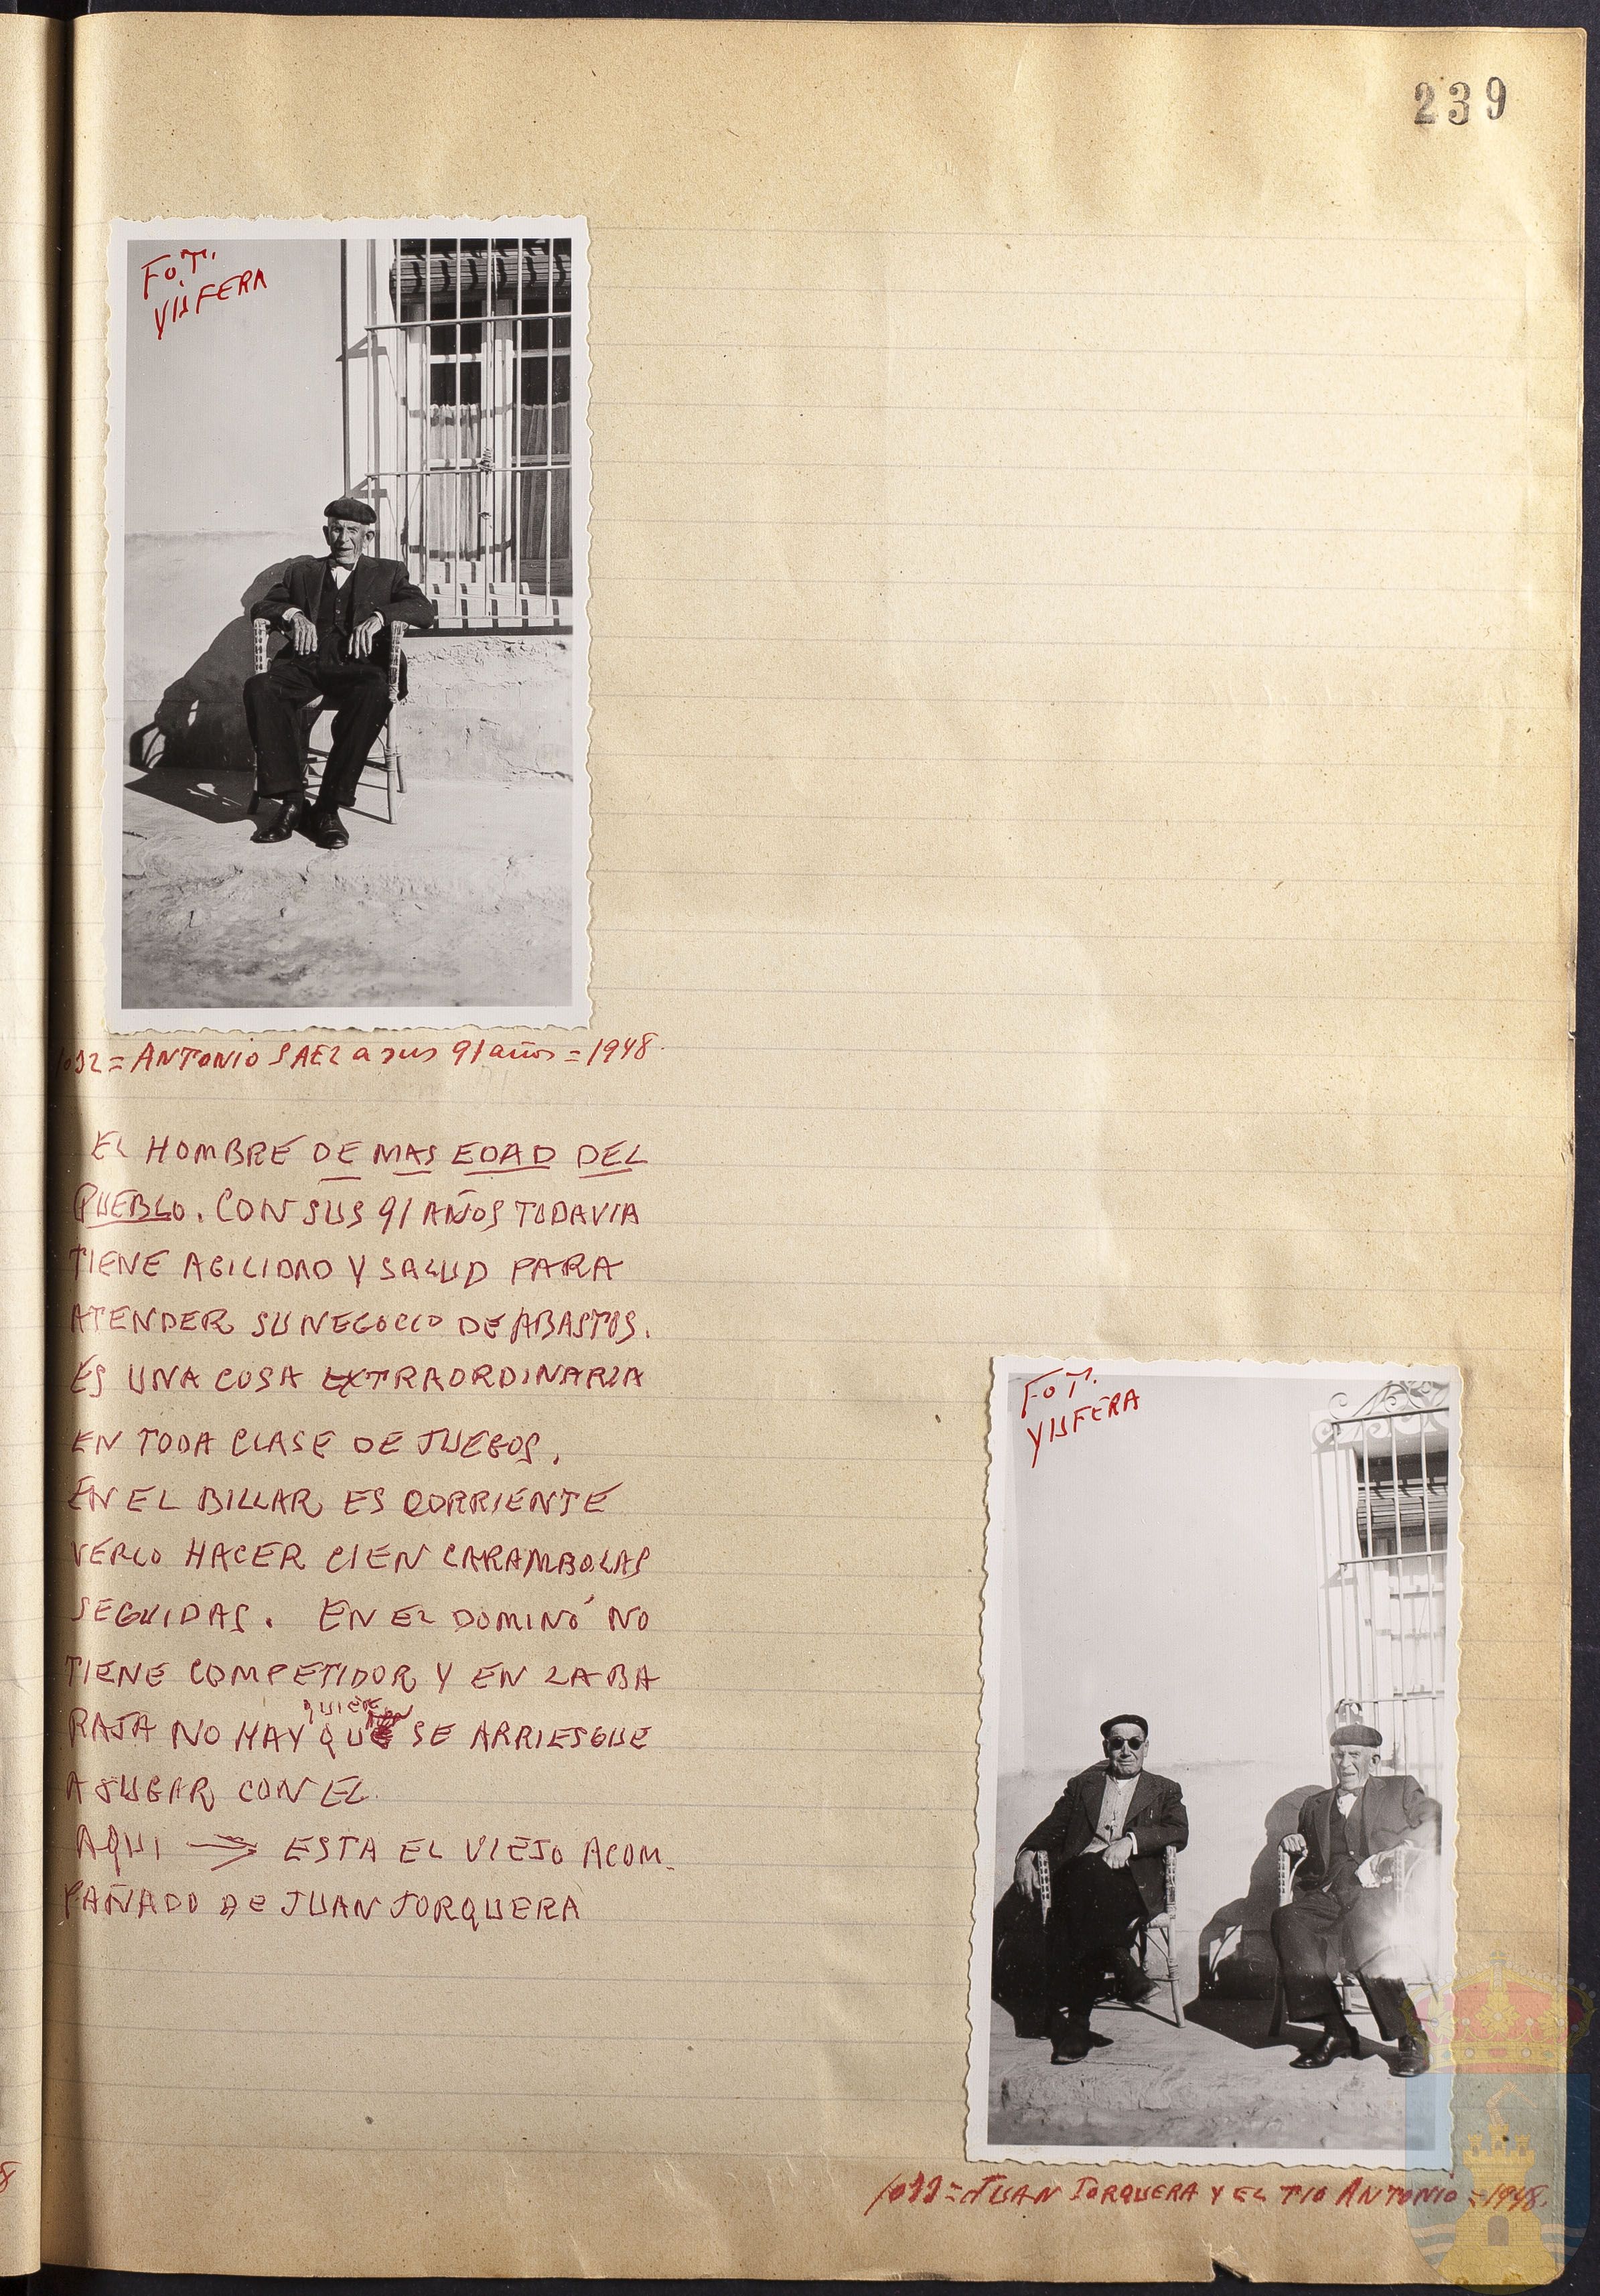 239
FOT.
YUFERA
= ANTONIO SAEZ a sus 91 años = 1948.
EL HOMBRE DE MAS EDAD DEL
PUEBLO. CON SUS 91 AÑOS TODAVIA
TIENE AGILIDAD Y SALUD PARA
ATENDER SU NEGOCIO DE ABASTOS.
ES UNA COSA EXTRAORDINARIA
EN TODA CLASE DE JUEGOS.
EN EL BILLAR ES CORRIENTE
VERLO HACER CIEN CARAMBOLAS
SEGUIDAS. EN EL DOMINÓ NO
TIENE COMPETIDOR Y EN LA BA
RAJA NO HAY QUIEN SE ARRIESGUE
A JUGAR CON EL.
AQUI → ESTA EL VIEJO ACOM-
PAÑADO DE JUAN JORQUERA
FOT.
YUFERA
= JUAN JORQUERA Y EL TIO ANTONIO = 1948.